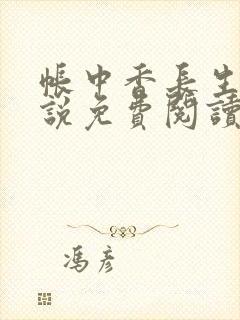 帳中香長生
說免費閱讀
馮彥